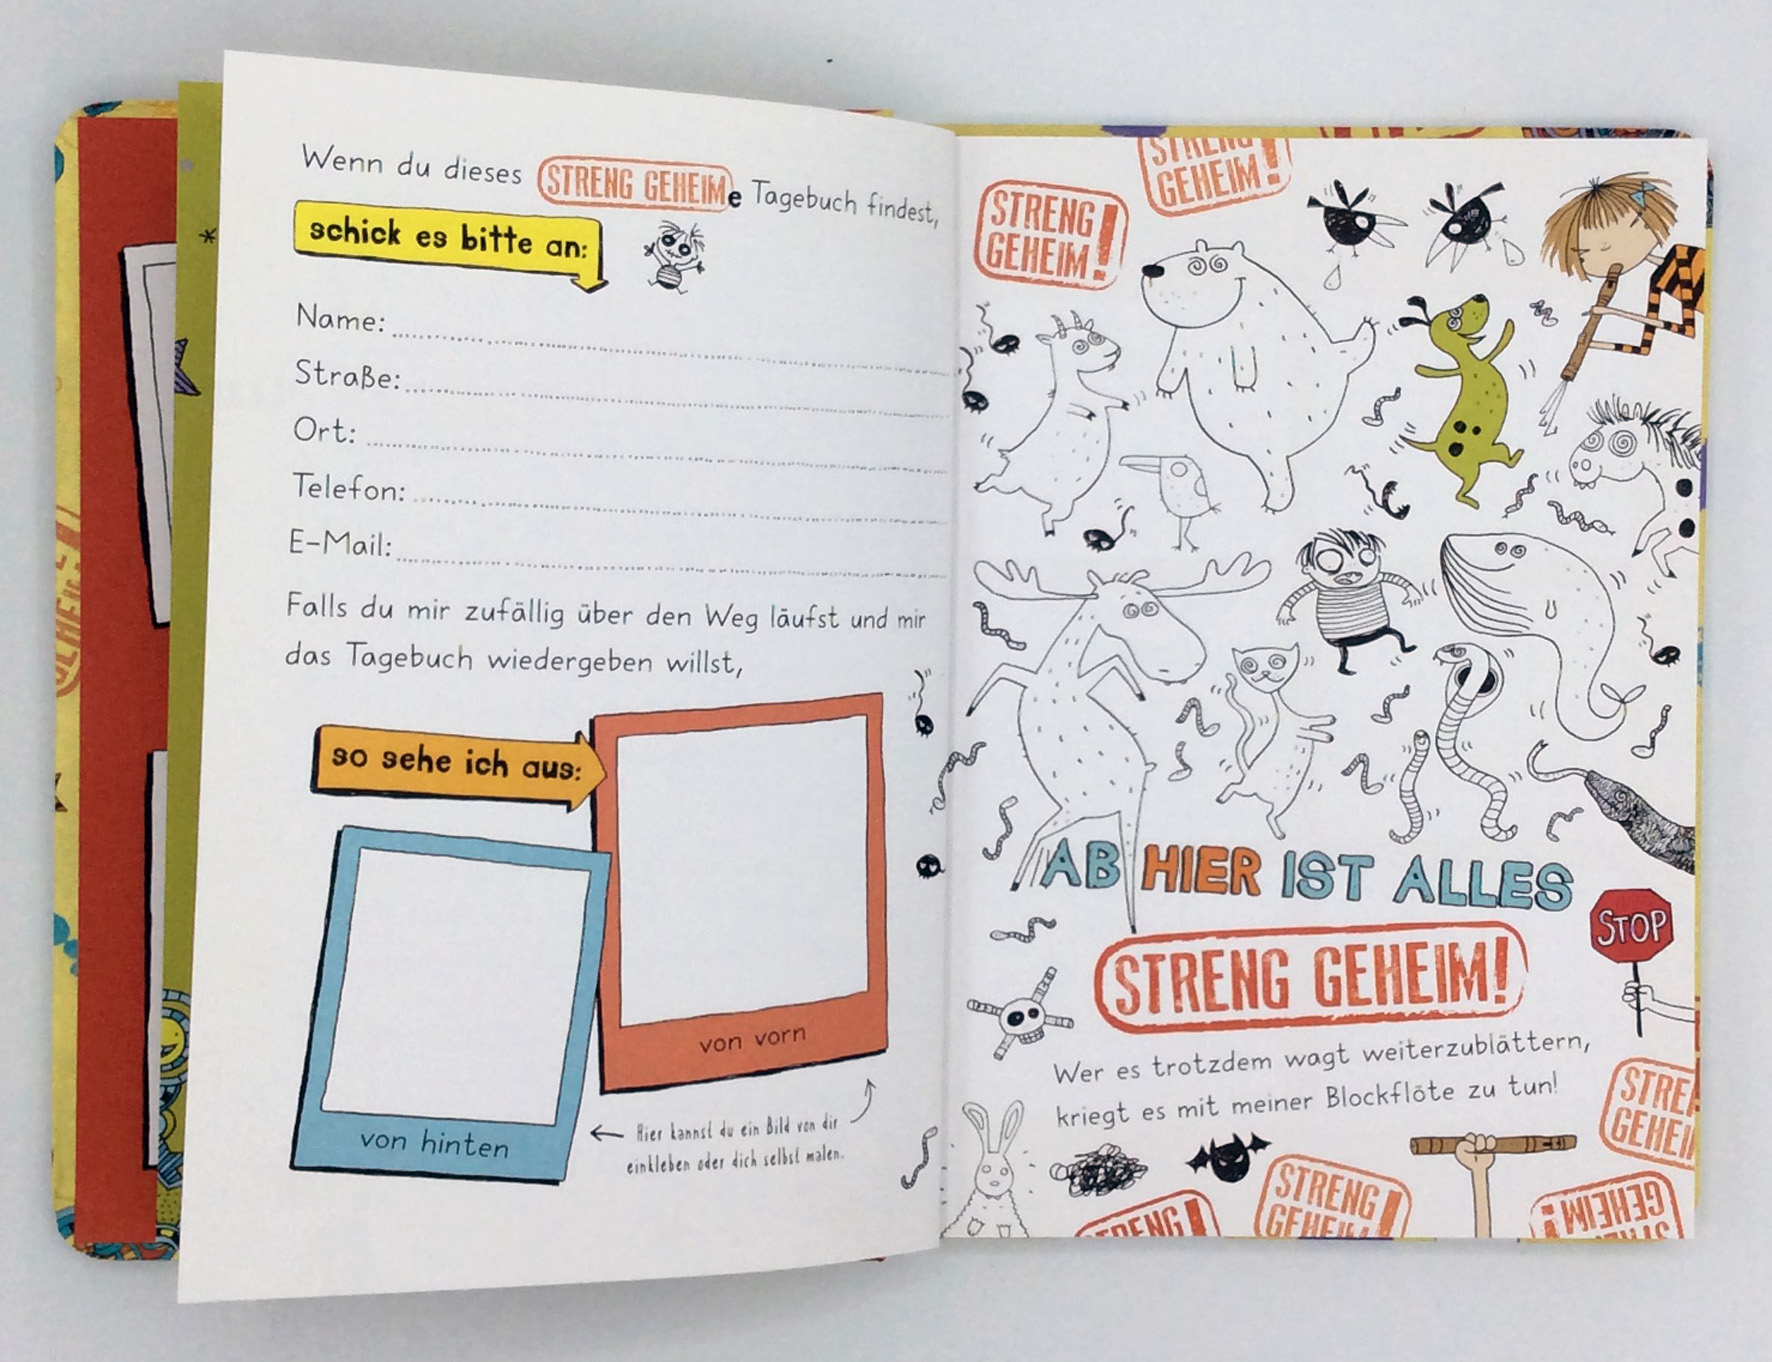 Wenn du dieses STRENG GEHEIMe Tagebuch findest,
schick es bitte an:
Name:
Straße:
Ort:
Telefon:
E-Mail:
Falls du mir zufällig über den Weg läufst und mir
das Tagebuch wiedergeben willst,
so sehe ich aus:
von vorn
von hinten
Hier kannst du ein Bild von dir
einkleben oder dich selbst malen.
STRENG
GEHEIM!
STRENG
GEHEIM!
AB HIER IST ALLES
STRENG GEHEIM!
STOP
Wer es trotzdem wagt weiterzublättern,
kriegt es mit meiner Blockflöte zu tun!
STRENG
GEHEIM
STRENG!
STRENG
GEHEIM!
STRENG
GEHEIM!